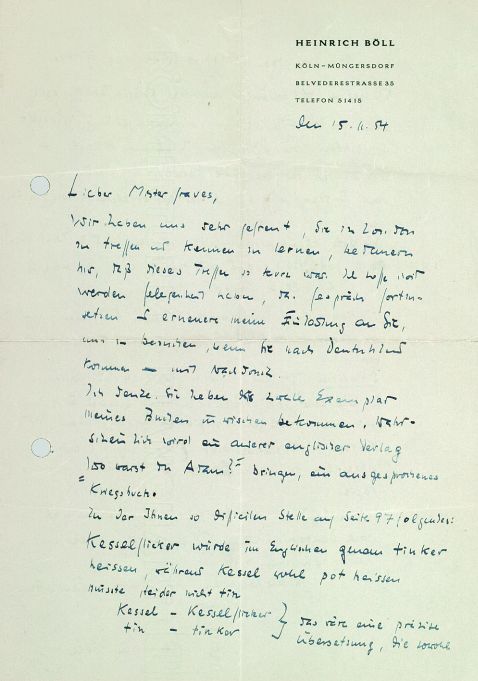 HEINRICH BÖLL
KÖLN-MÜNGERSDORF
BELVEDERESTRASSE 35
TELEFON 51415
den 15. 11. 54
Lieber Mister Graves,
wir haben uns sehr gefreut, Sie in London
zu treffen und kennen zu lernen, bedauern
nur, daß dieses Treffen so kurz war. Ich hoffe, wir
werden Gelegenheit haben, das Gespräch fortzu-
setzen & erneuere meine Einladung an Sie,
uns zu besuchen, wenn Sie nach Deutschland
kommen – mit Nachdruck.
Ich denke. Sie haben das zweite Exemplar
meines Buches inzwischen bekommen. Wahr-
scheinlich wird ein anderer englischer Verlag
„Wo warst du Adam?" bringen, ein ausgesprochenes
Kriegsbuch.
Zu der Ihnen so diffizilen Stelle auf Seite 97 folgendes:
Kesselflicker würde im Englischen genau tinker
heissen, während Kessel wohl pot heissen
müsste leider nicht tin
Kessel – Kesselflicker
tin – tinker
} das wäre eine präzise
Übersetzung, die sowohl